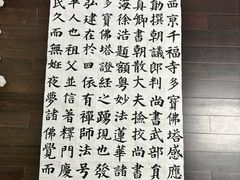 西京千福寺多寶佛塔感應
勛撰朝議郎判尚書武部員
真卿書朝散大夫撿挍尚書
海徐浩題額粵妙法蓮華諸
多寶佛塔證經之踴現也發
弘建在於四依有禪師法号
平人也祖父並信著釋門慶
氏久而無妊夜夢諸佛覺而